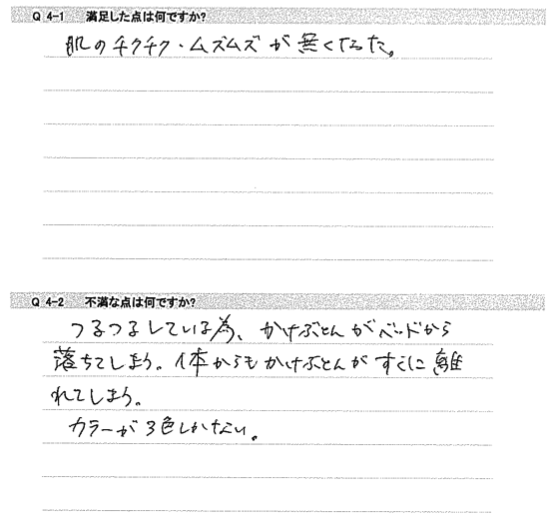 Q 4-1 満足した点は何ですか?
肌のチクチク・ムズムズが無くなった。
Q 4-2 不満な点は何ですか?
つるつるしている為、かけぶとんがベッドから
落ちてしまう。体からもかけぶとんがすぐに離
れてしまう。
カラーが3色しかない。